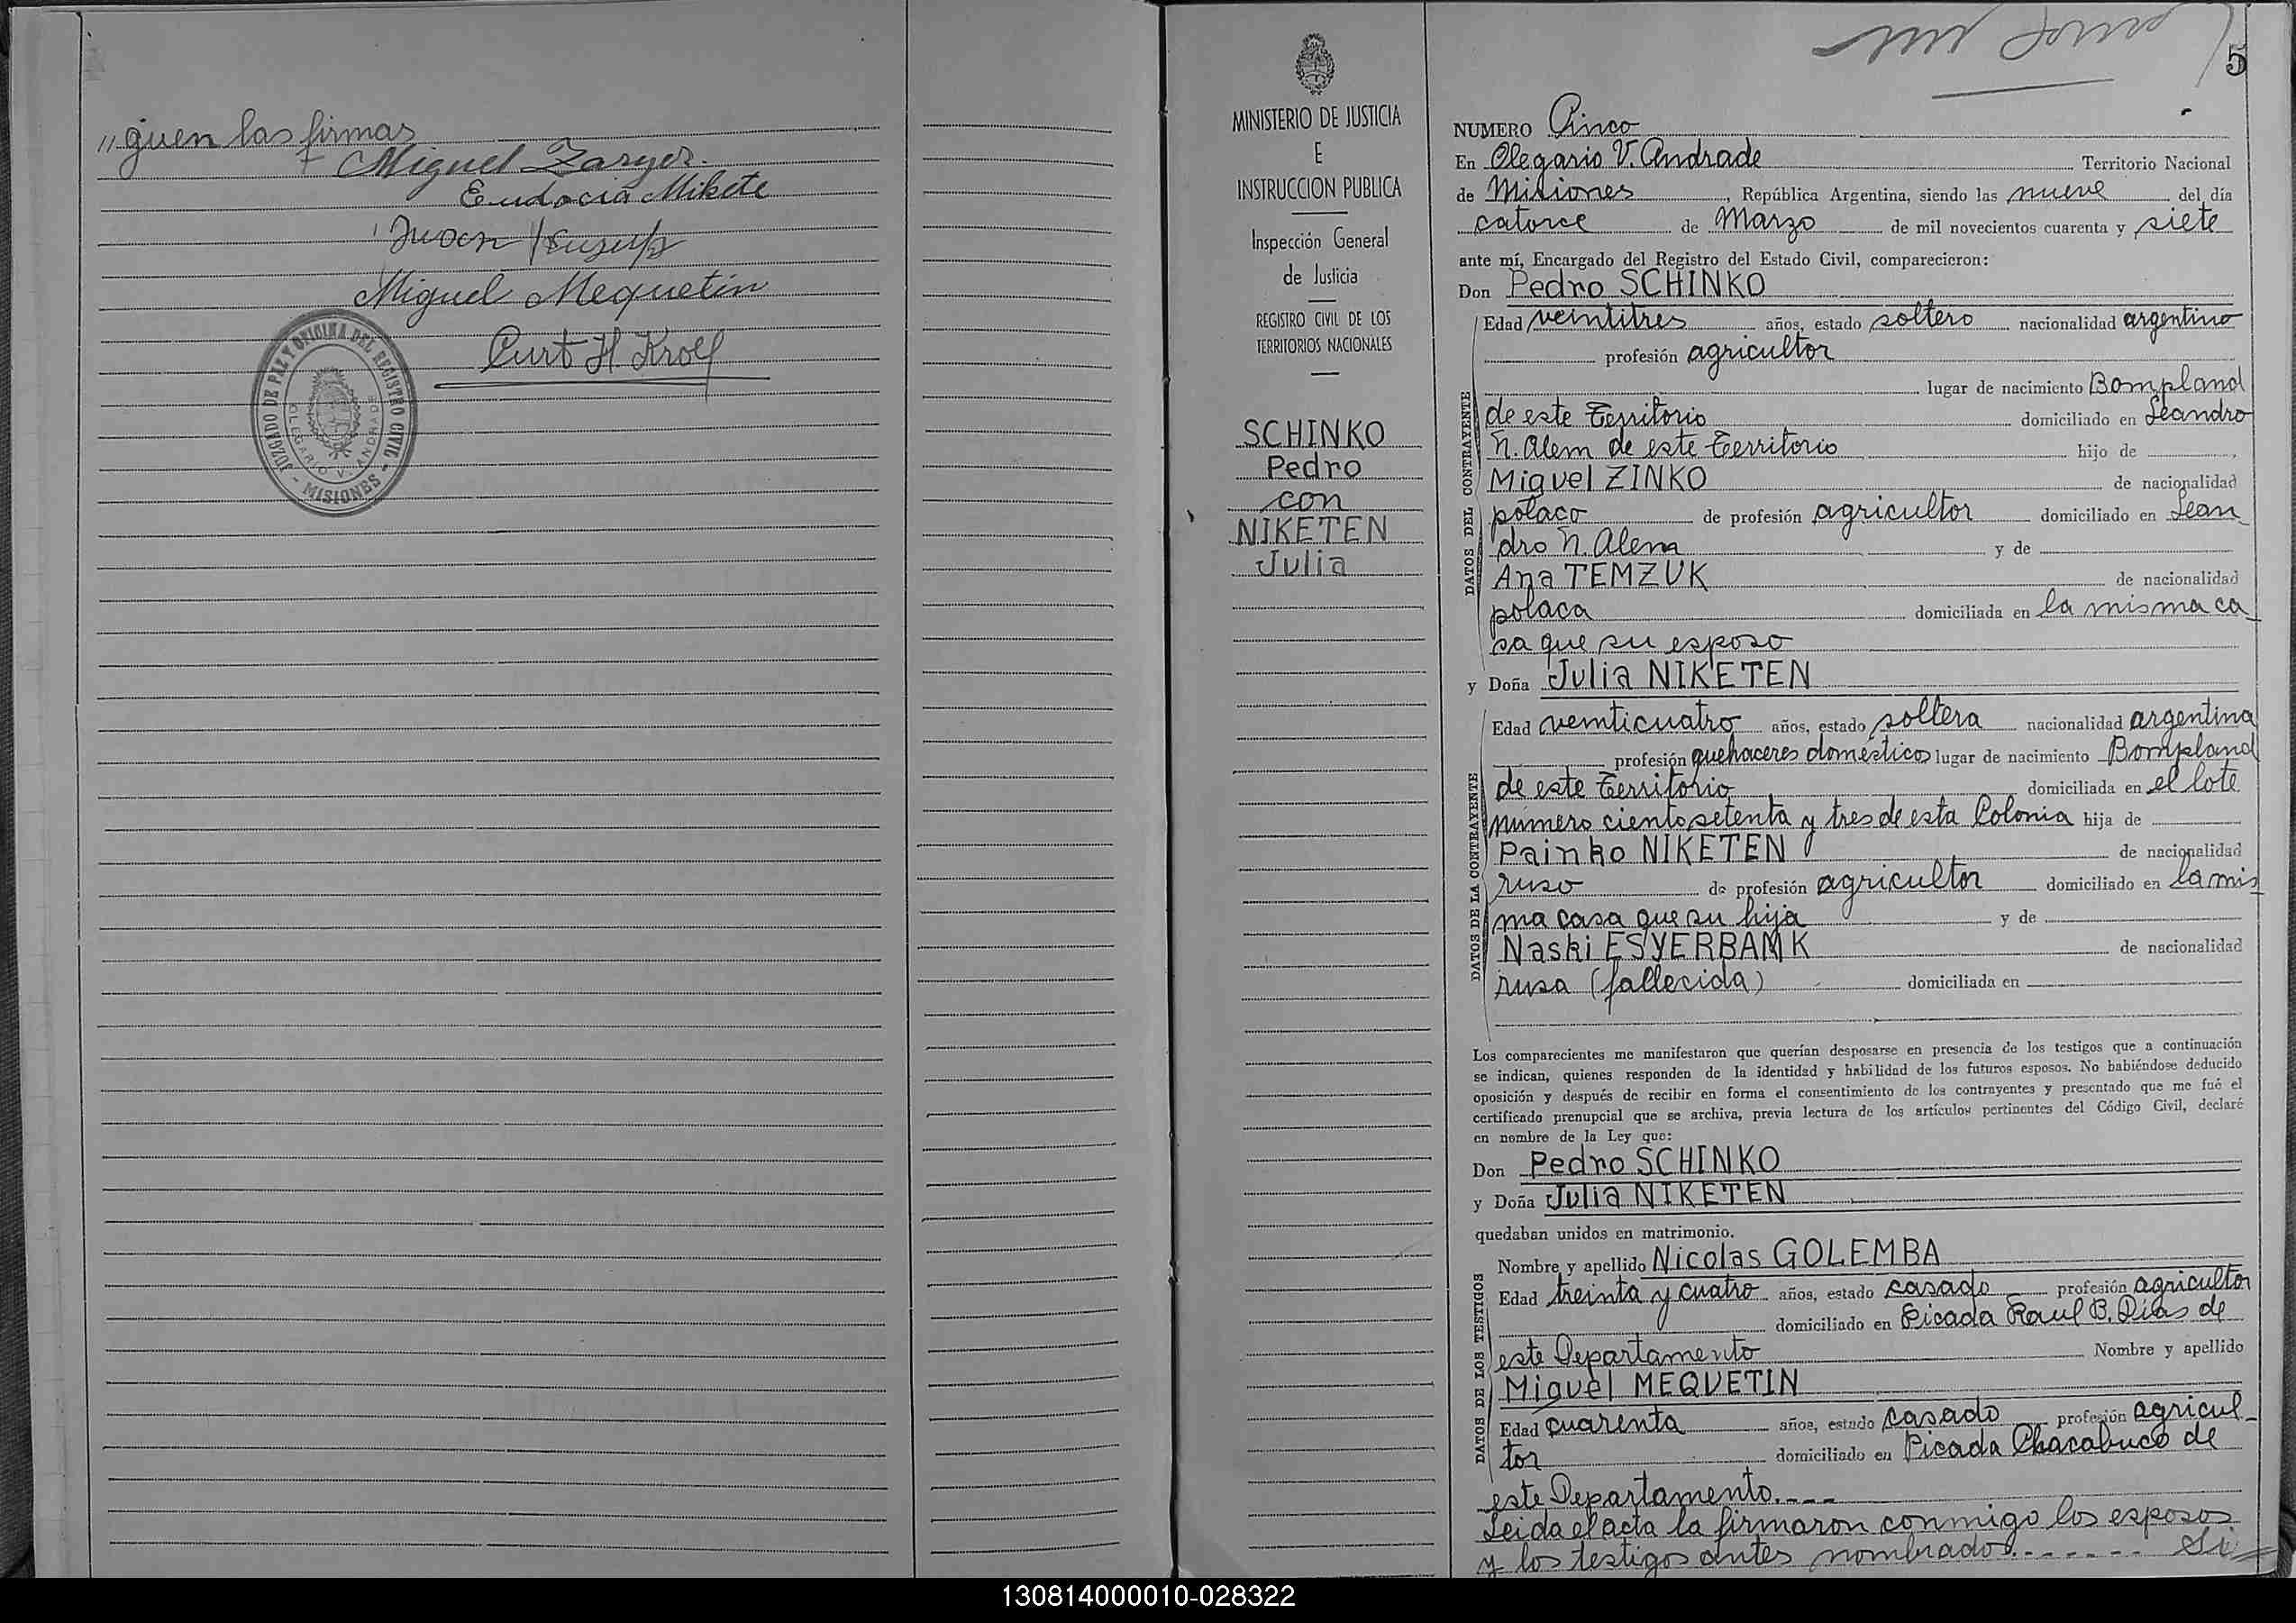 "guen las firmas
Miguel
Eudocia Mikete
Juan
Miguel Mequetin
Curt H. Kroll
JUZGADO DE PAZ Y OFICINA DEL REGISTRO CIVIL
OLEGARIO V. ANDRADE
- MISIONES -
MINISTERIO DE JUSTICIA
E
INSTRUCCION PUBLICA
Inspección General
de Justicia
REGISTRO CIVIL DE LOS
TERRITORIOS NACIONALES
SCHINKO
Pedro
con
NIKETEN
Julia
5
NUMERO Cinco
En Olegario V. Andrade Territorio Nacional
de Misiones, República Argentina, siendo las nueve del día
catorce de Marzo de mil novecientos cuarenta y siete
ante mí, Encargado del Registro del Estado Civil, comparecieron:
Don Pedro SCHINKO
Edad veintitres años, estado soltero nacionalidad argentino
profesión agricultor
lugar de nacimiento Bompland
de este Territorio domiciliado en Leandro
N. Alem de este Territorio hijo de
Miguel ZINKO de nacionalidad
polaco de profesión agricultor domiciliado en Lean
dro N. Alem y de
Ana TEMZUK de nacionalidad
polaca domiciliada en la misma ca
sa que su esposo
y Doña Julia NIKETEN
Edad veinticuatro años, estado soltera nacionalidad argentina
profesión quehaceres domésticos lugar de nacimiento Bompland
de este Territorio domiciliada en el lote
número ciento setenta y tres de esta Colonia hija de
Painko NIKETEN de nacionalidad
ruso de profesión agricultor domiciliado en la mis
ma casa que su hija y de
Naski ESYERBAMK de nacionalidad
rusa (fallecida) domiciliada en
DATOS DEL CONTRAYENTE
DATOS DE LA CONTRAYENTE
Los comparecientes me manifestaron que querían desposarse en presencia de los testigos que a continuación
se indican, quienes responden de la identidad y habilidad de los futuros esposos. No habiéndose deducido
oposición y después de recibir en forma el consentimiento de los contrayentes y presentado que me fué el
certificado prenupcial que se archiva, previa lectura de los artículos pertinentes del Código Civil, declaré
en nombre de la Ley que:
Don Pedro SCHINKO
y Doña Julia NIKETEN
quedaban unidos en matrimonio.
Nombre y apellido Nicolas GOLEMBA
Edad treinta y cuatro años, estado casado profesión agricultor
domiciliado en Picada Raul B. Dias de
este Departamento Nombre y apellido
Miguel MEQUETIN
Edad cuarenta años, estado casado profesión agricul
tor domiciliado en Picada Chacabuco de
este Departamento.---
DATOS DE LOS TESTIGOS
Leida el acta la firmaron conmigo los esposos
y los testigos antes nombrados.------- Si
130814000010-028322